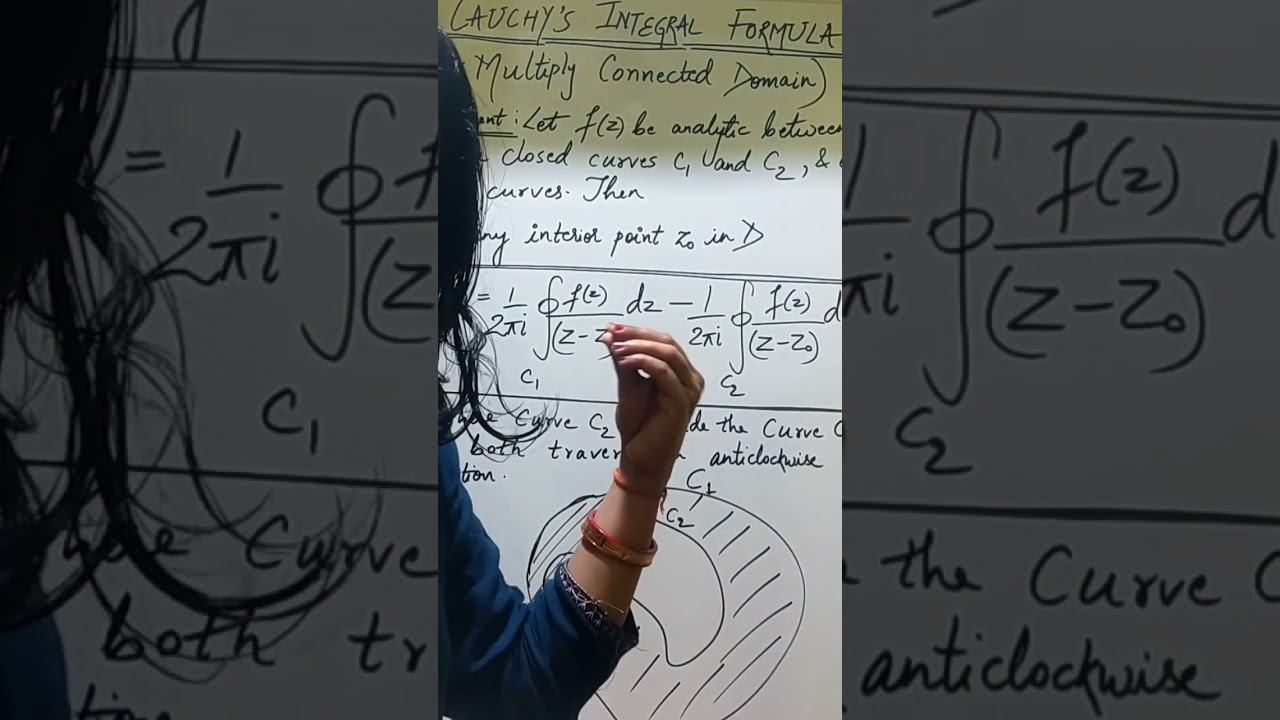 CAUCHY'S INTEGRAL FORMULA
Multiply Connected Domain)
ent: Let f(z) be analytic between
closed curves C₁ and C₂, &
curves. Then
ny interior point z₀ in D
= 1/2πi ∮ f(z)/(z-z dz - 1/2πi ∮ f(z)/(z-z₀) d
C₁ C₂
Curve C₂ de the Curve C
both traver anticlockwise
tion.
C₁
C₂
= 1/2πi ∮ f /(z
C₁
Curve
both tr
tion
πi ∮ f(z)/(z-z₀) d
C₂
the Curve C
anticlockwise